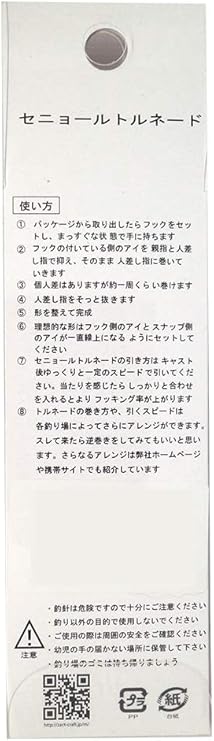 セニョールトルネード
使い方
① パッケージから取り出したらフックをセッ
トし、まっすぐな状 態で手に持ちます
② フックの付いている側のアイを 親指と人差
し指で抑え、そのまま 人差し指に巻いて
いきます
③ 個人差はありますが約一周くらい巻けます
④ 人差し指をそっと抜きます
⑤ 形を整えて完成
⑥ 理想的な形はフック側のアイと スナップ側
のアイが一直線上になる ようにセットして
ください
⑦ セニョールトルネードの引き方は キャスト
後ゆっくりと一定のスピード で引いてくだ
さい。当たりを感じたら しっかりと合わせ
を入れるとより フッキング率が上がります
⑧ トルネードの巻き方や、引くスピードは
各釣り場によってさらにアレンジができます。
スレて来たら逆巻きをしてみてもいいと思い
ます。さらなるアレンジは弊社ホームページ
や携帯サイトでも紹介しています
・釣針は危険ですので十分にご注意ください
・釣り以外の目的で使用しないでください
・ご使用の際は周囲の安全をご確認ください
・幼児の手の届かない場所に保管して下さい
・釣り場のゴミは持ち帰りましょう
注意
プラ
PP
紙
台紙
http://zact-craft.jp/m/